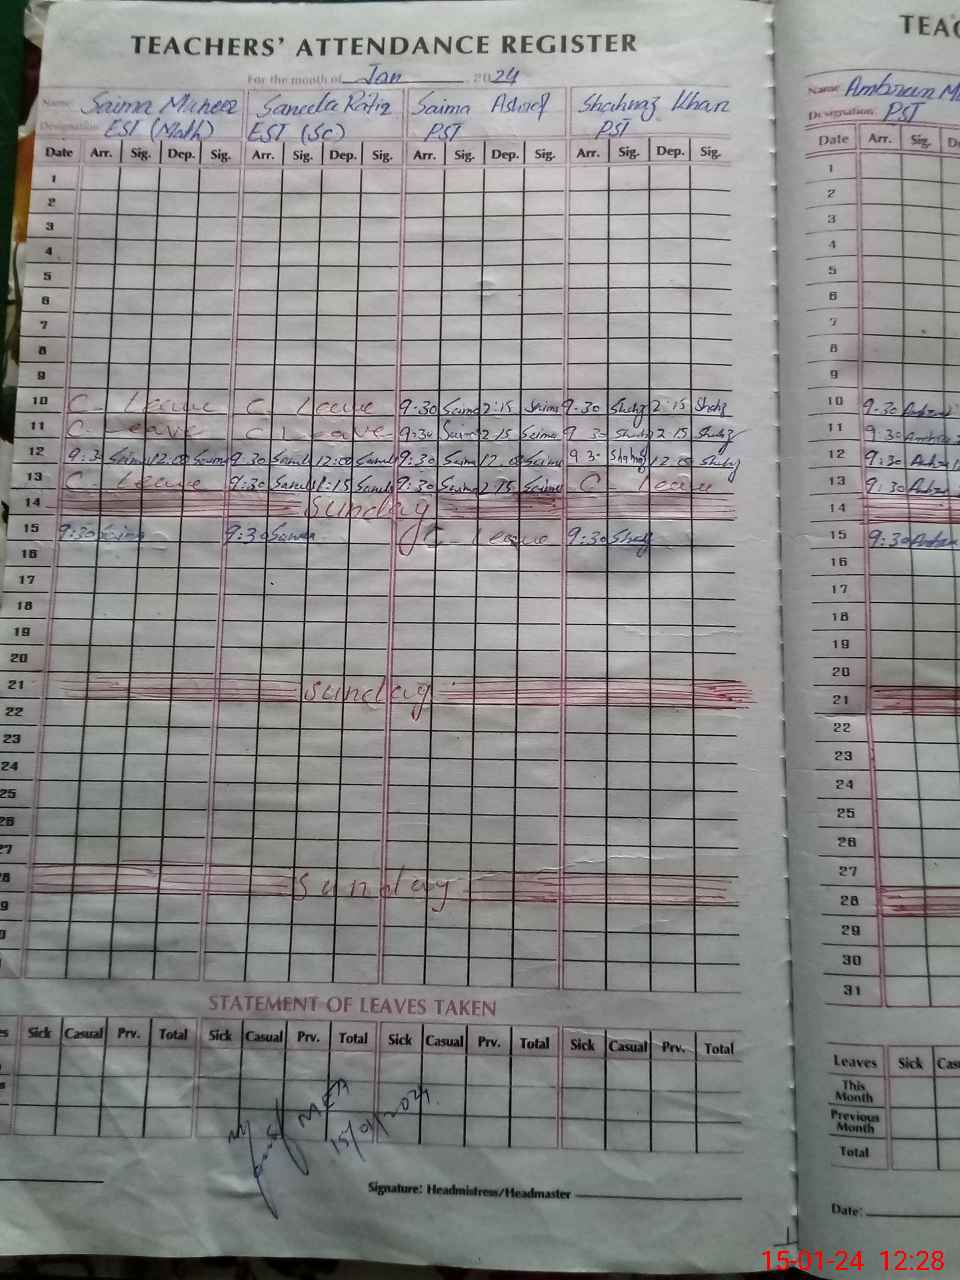 TEACHERS' ATTENDANCE REGISTER
For the month of Jan 2024
Name: Saima Muneer Saneela Rafiq Saima Ashraf Shahnaz Khan
Designation: EST (Math) EST (Sc) PST PST
Date Arr. Sig. Dep. Sig. Arr. Sig. Dep. Sig. Arr. Sig. Dep. Sig. Arr. Sig. Dep. Sig.
1
2
3
4
5
6
7
8
9
10 C- Leave C- Leave 9:30 Saima 2:15 Saima 9:30 Shahz 2:15 Shahz
11 C- Leave C Leave 9:30 Saima 2 15 Saima 9 30 Shahz 2 15 Shahz
12 9:3 Saima 12:00 Saima 9:30 Sanul 12:00 Sanul 9:30 Saima 12,00 Saima 9 30 Shahz 12 00 Shahz
13 C- Leave 9:30 Sanul 2:15 Sanul 9:30 Saima 2:15 Saima C- Leave
14 Sunday
15 9:30 Saima 9:30 C- Leave 9:30 Shahz
16
17
18
19
20
21 Sunday
22
23
24
25
26
27
8 Sunday
9
STATEMENT OF LEAVES TAKEN
es Sick Casual Prv. Total Sick Casual Prv. Total Sick Casual Prv. Total Sick Casual Prv. Total
MEA
15/01/2024
Signature: Headmistress/Headmaster
TEAC
Name:
Designation: PST
Date Arr. Sig. De
1
2
3
4
5
6
7
8
9
10 9.30
11 9:30
12 9:30
13 9:30
14
15 9:30
16
17
18
19
20
21
22
23
24
25
26
27
28
29
30
31
Leaves Sick Cas
This Month
Previous Month
Total
Date:
15-01-24 12:28